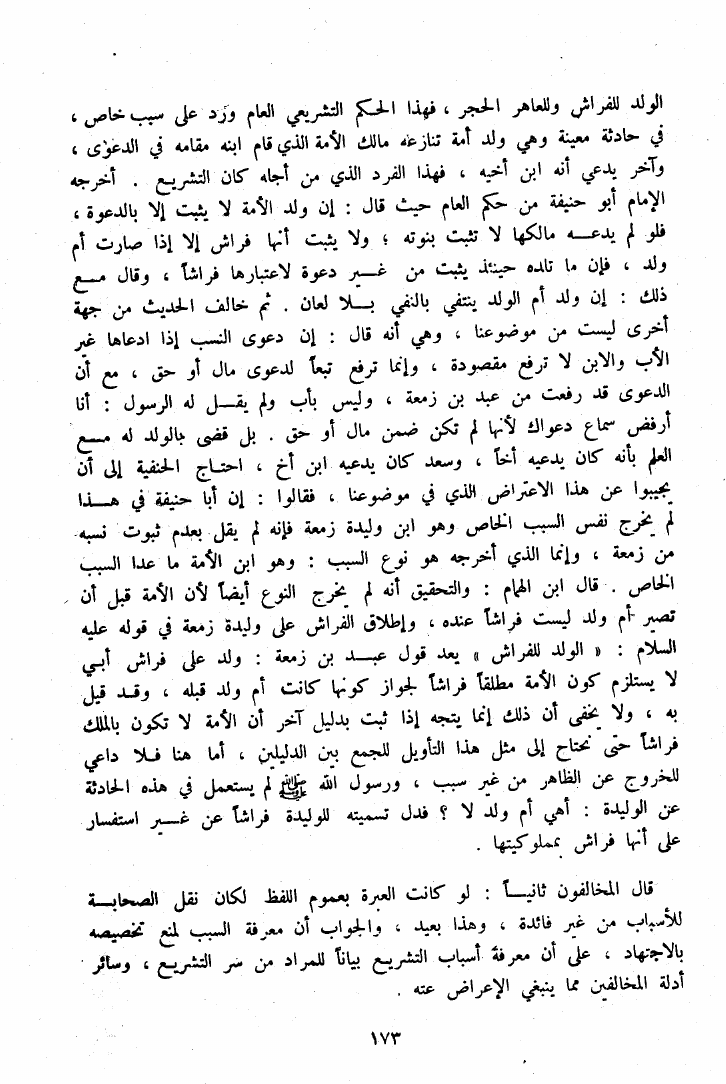 الولد للفراش وللعاهر الحجر ، فهذا الحكم التشريعي العام ورد على سبب خاص ،
في حادثة معينة وهي ولد أمة تنازعه مالك الأمة الذي قام ابنه مقامه في الدعوى ،
وآخر يدعي أنه ابن أخيه ، فهذا الفرد الذي من أجله كان التشريع . أخرجه
الإمام أبو حنيفة من حكم العام حيث قال : إن ولد الأمة لا يثبت إلا بالدعوة ،
فلو لم يدعه مالكها لا تثبت بنوته ؛ ولا يثبت أنها فراش إلا إذا صارت أم
ولد ، فإن ما تلده حينئذ يثبت من غير دعوة لاعتبارها فراشاً ، وقال مع
ذلك : إن ولد أم الولد ينتفي بالنفي بلا لعان . ثم خالف الحديث من جهة
أخرى ليست من موضوعنا ، وهي أنه قال : إن دعوى النسب إذا ادعاها غير
الأب والابن لا ترفع مقصودة ، وإنما ترفع تبعاً لدعوى مال أو حق ، مع أن
الدعوى قد رفعت من عبد بن زمعة ، وليس بأب ولم يقل له الرسول : أنا
أرفض سماع دعواك لأنها لم تكن ضمن مال أو حق . بل قضى بالولد له مع
العلم بأنه كان يدعيه أخاً ، وسعد كان يدعيه ابن أخ ، احتاج الحنفية إلى أن
يجيبوا عن هذا الاعتراض الذي في موضوعنا ، فقالوا : إن أبا حنيفة في هذا
لم يخرج نفس السبب الخاص وهو ابن وليدة زمعة فإنه لم يقل بعدم ثبوت نسبه
من زمعة ، وإنما الذي أخرجه هو نوع السبب : وهو ابن الأمة ما عدا السبب
الخاص . قال ابن الهمام : والتحقيق أنه لم يخرج النوع أيضاً لأن الأمة قبل أن
تصير أم ولد ليست فراشاً عنده ، وإطلاق الفراش على وليدة زمعة في قوله عليه
السلام : « الولد للفراش » بعد قول عبد بن زمعة : ولد على فراش أبي
لا يستلزم كون الأمة مطلقاً فراشاً لجواز كونها كانت أم ولد قبله ، وقد قيل
به ، ولا يخفى أن ذلك إنما يتجه إذا ثبت بدليل آخر أن الأمة لا تكون بالملك
فراشاً حتى نحتاج إلى مثل هذا التأويل للجمع بين الدليلين ، أما هنا فلا داعي
للخروج عن الظاهر من غير سبب ، ورسول الله ﷺ لم يستعمل في هذه الحادثة
عن الوليدة : أهي أم ولد لا ؟ فدل تسميته للوليدة فراشاً عن غير استفسار
على أنها فراش بمملوكيتها .
قال المخالفون ثانياً : لو كانت العبرة بعموم اللفظ لكان نقل الصحابة
للأسباب من غير فائدة ، وهذا بعيد ، والجواب أن معرفة السبب لمنع تخصيصه
بالاجتهاد ، على أن معرفة أسباب التشريع بياناً للمراد من سر التشريع ، وسائر
أدلة المخالفين مما ينبغي الإعراض عته .
١٧٣